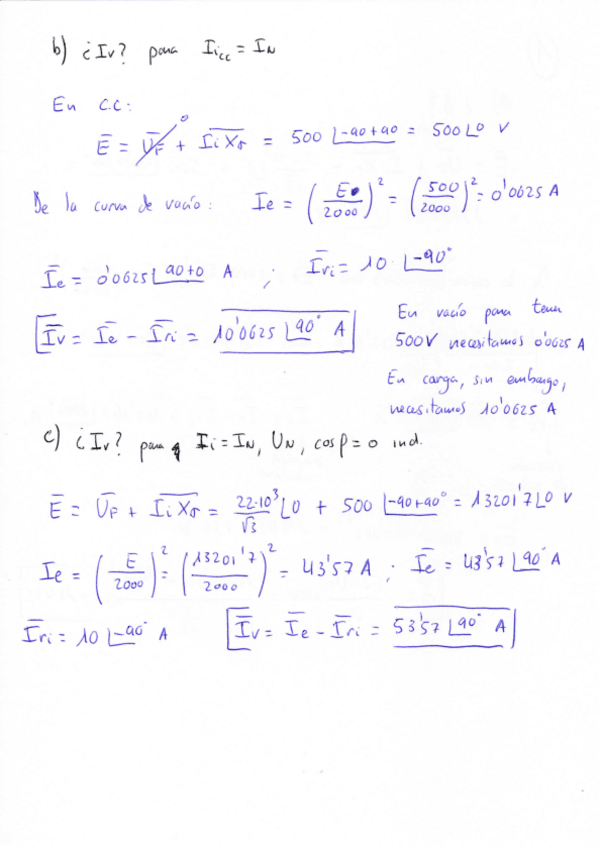 b) ¿Iv? para Iicc = IN
En C.C:
Ē = ŪF⁰ + ĪiX̄σ = 500 ∠-90+90 = 500∠0 V
De la curva de vacío: Ie = (E/2000)² = (500/2000)² = 0'0625 A
Īe = 0'0625∠90+0 A ; Īri = 10 · ∠-90°
Īv = Īe - Īri = 10'0625 ∠90° A
En vacío para tener
500V necesitamos 0'0625 A
En carga, sin embargo,
necesitamos 10'0625 A
c) ¿Iv? para q Ii = IN, UN, cosρ = 0 ind.
Ē = ŪF + ĪiX̄σ = 22·10³/√3 ∠0 + 500 ∠-90+90° = 13201'7∠0 V
Ie = (E/2000)² = (13201'7/2000)² = 43'57 A ; Īe = 43'57 ∠90° A
Īri = 10 ∠-90° A
Īv = Īe - Īri = 53'57 ∠90° A